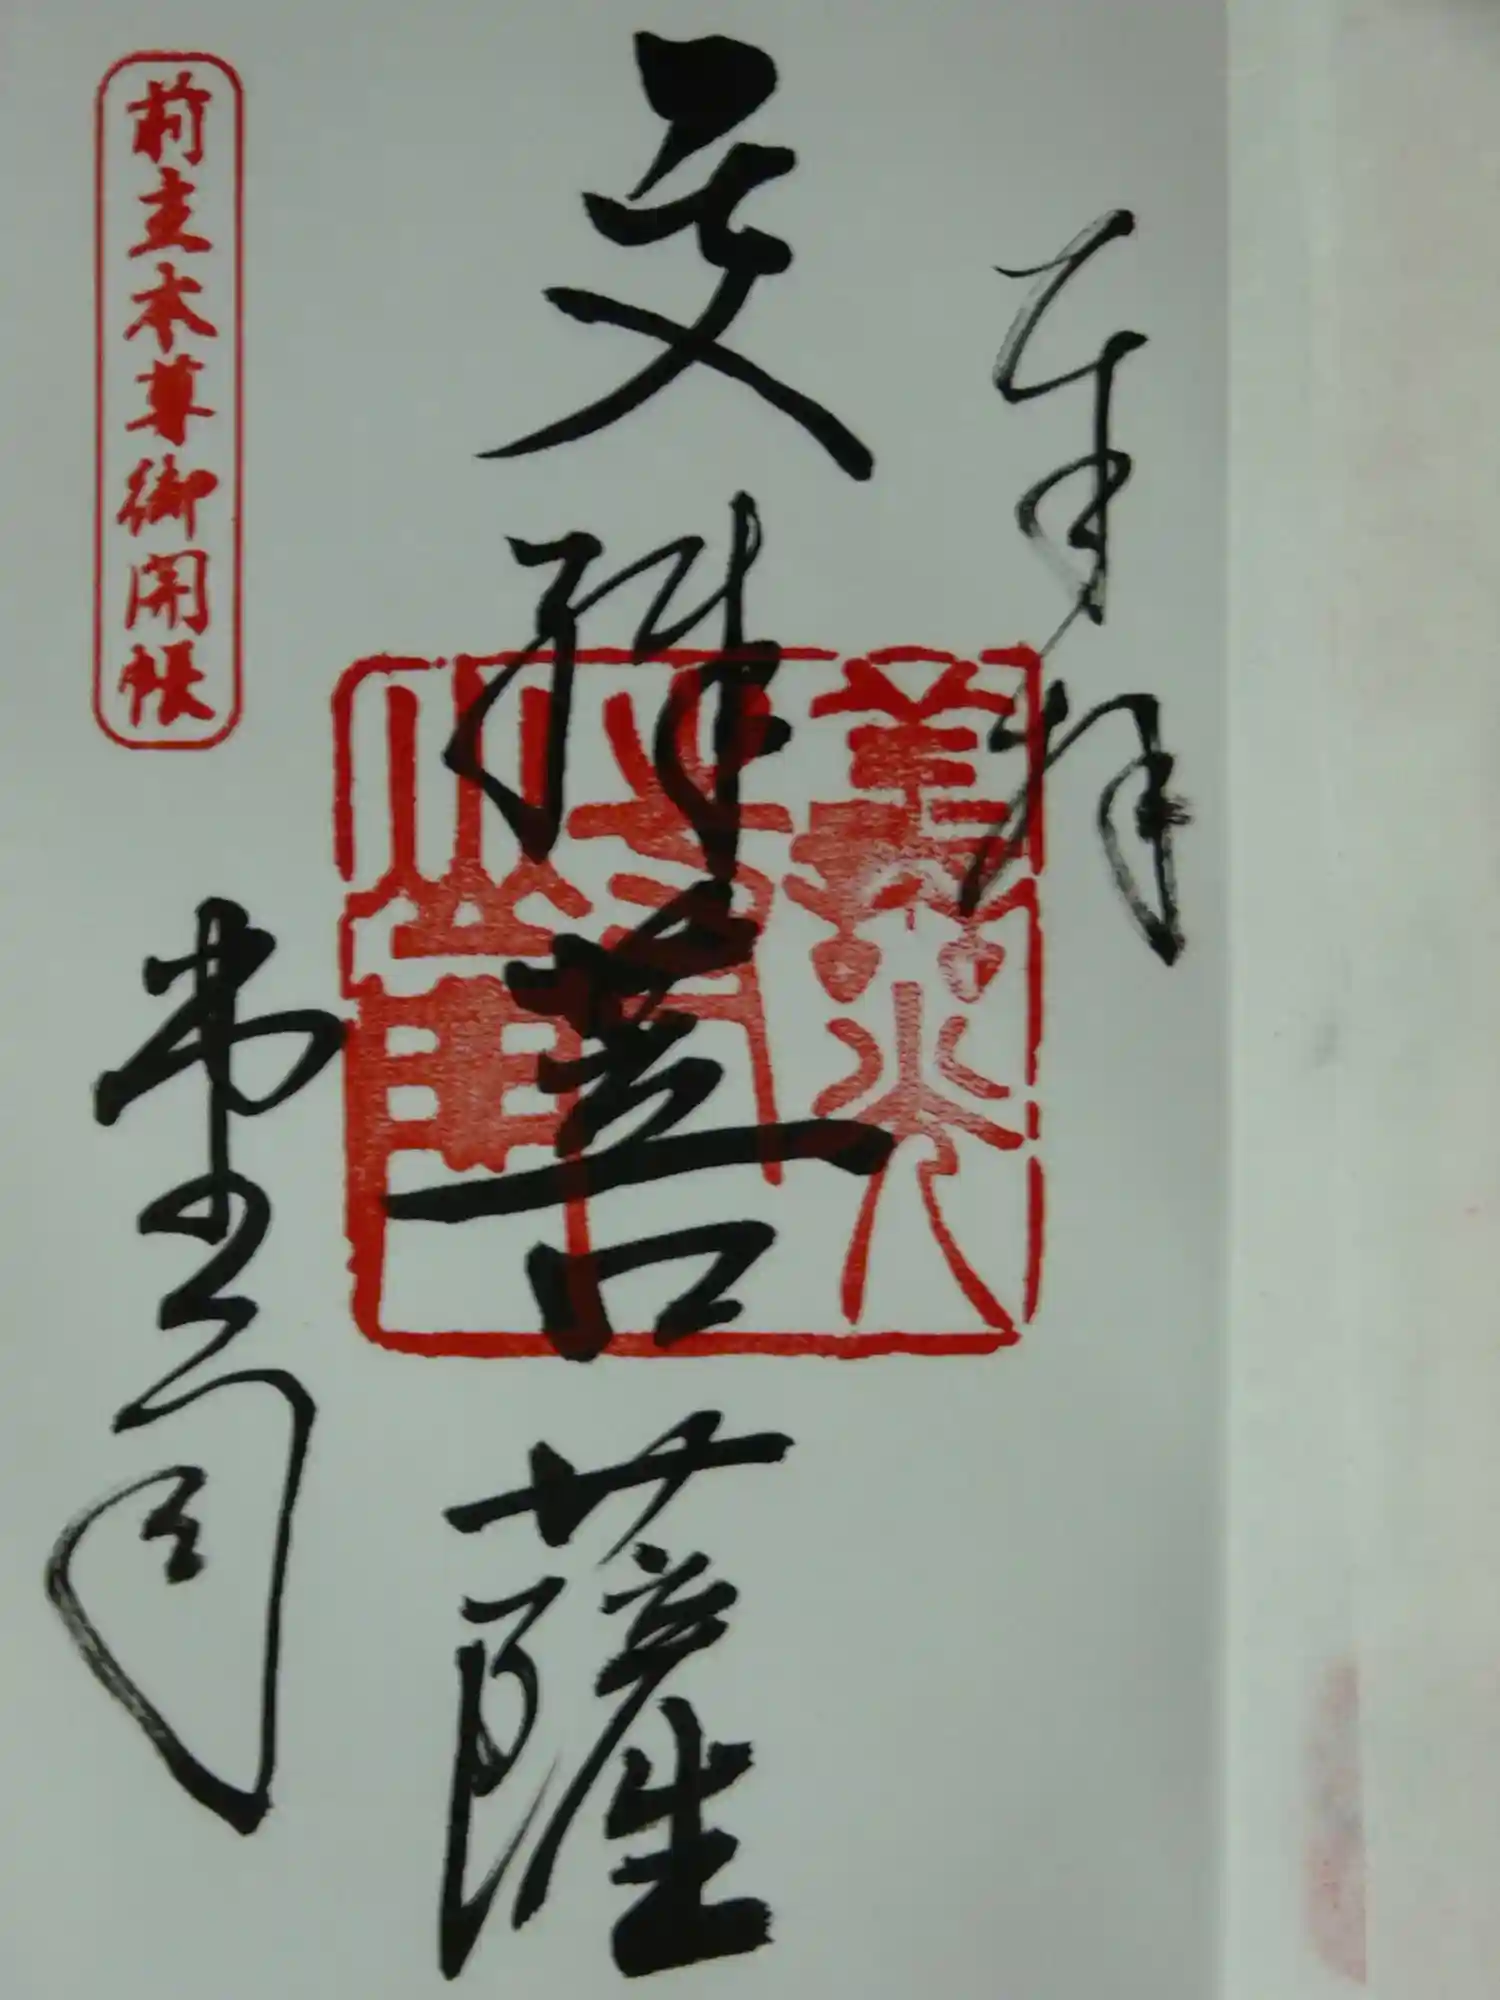 奉拝
文殊菩薩
前立本尊御開帳
堂司